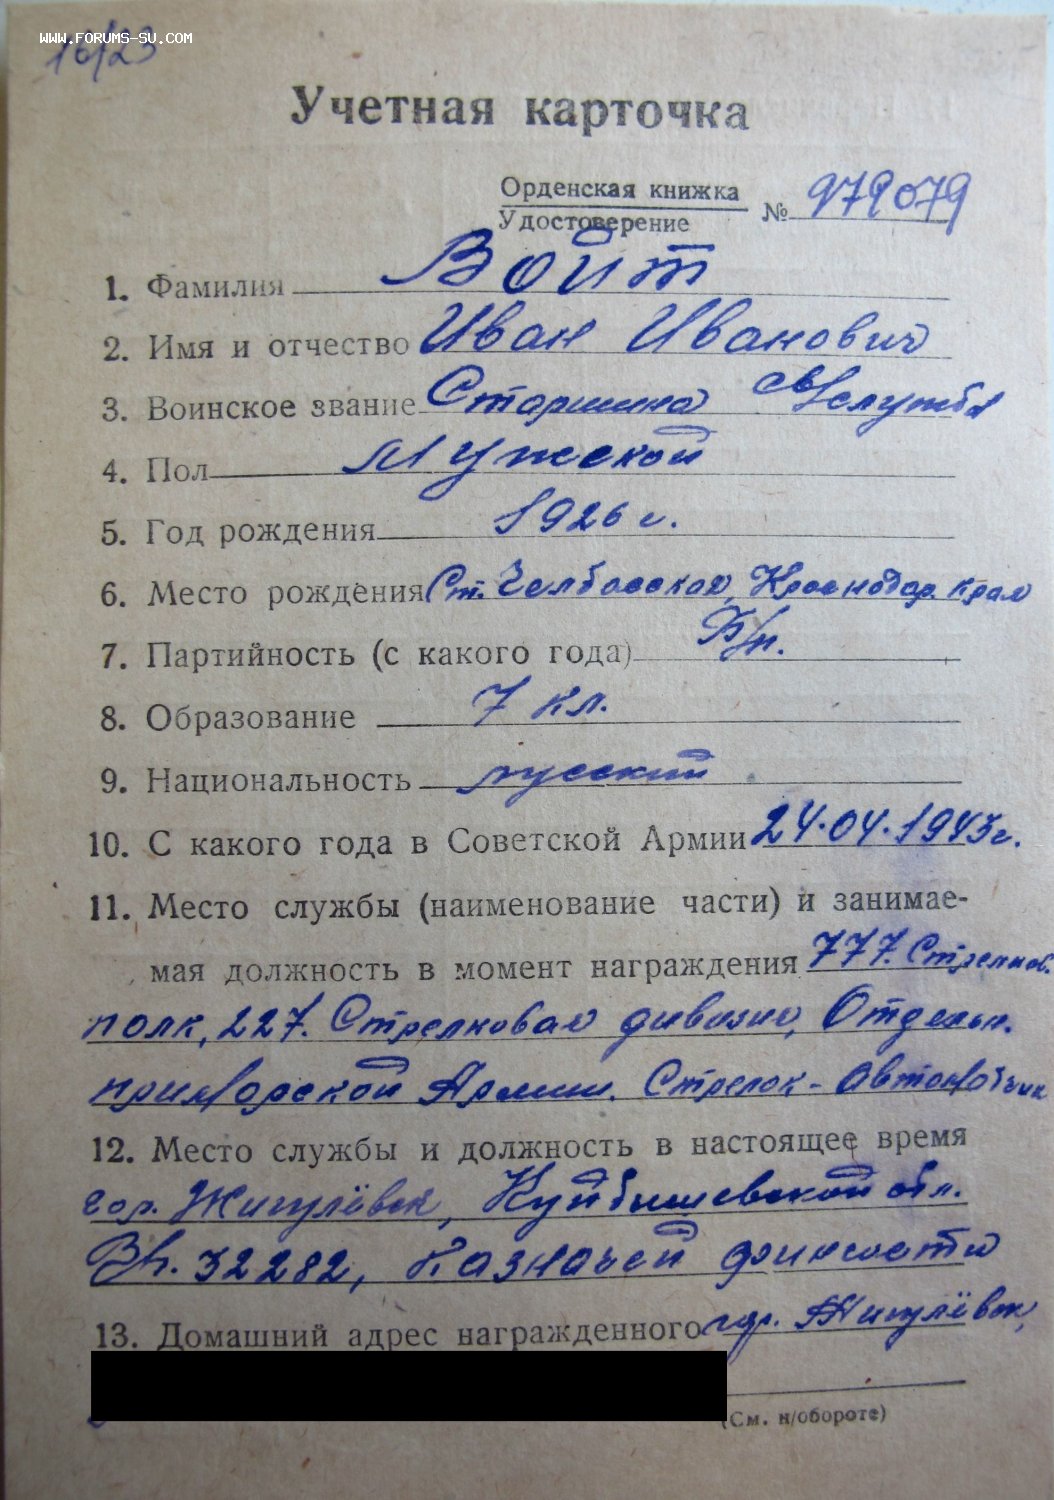 www.forums-su.com
16/23
Учетная карточка
Орденская книжка
Удостоверение
№ 979079
1. Фамилия Войт
2. Имя и отчество Иван Иванович
3. Воинское звание Старшина св/службы
4. Пол Мужской
5. Год рождения 1926 г.
6. Место рождения Ст. Челбасская, Краснодар. края
7. Партийность (с какого года) Б/п.
8. Образование 7 кл.
9. Национальность русский
10. С какого года в Советской Армии 24.04.1943г.
11. Место службы (наименование части) и занимае-
мая должность в момент награждения 777. Стрелков.
полк, 227. Стрелковая дивизия, Отдельн.
приморской Армии. Стрелок-автоматчик
12. Место службы и должность в настоящее время
гор. Жигулёвск, Куйбышевской обл.
В/ч. 32282, казначей финчасти
13. Домашний адрес награжденного гор. Жигулёвск,
(См. н/обороте)